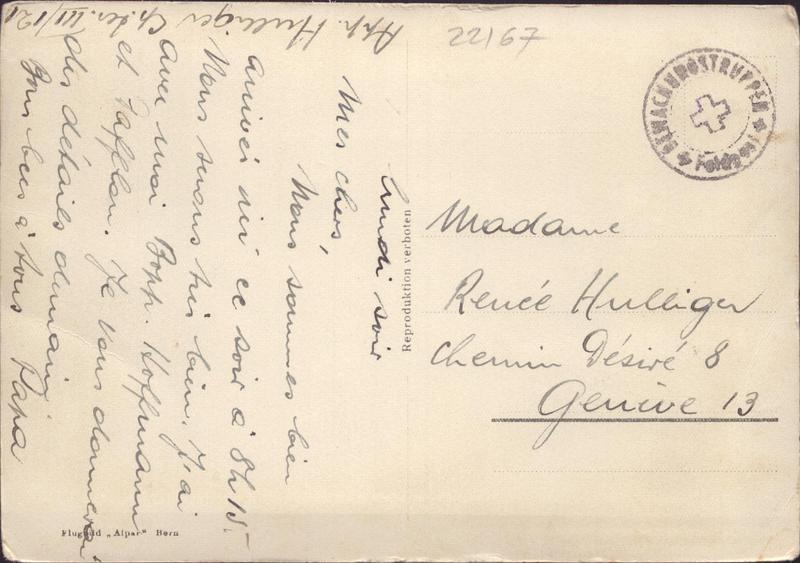 App. Hulliger Cp. ter. III/121
22/67
BEWACHUNGSTRUPPEN
Feldpost
Lundi soir
Mes chers,
Nous sommes bien
arrivés ici ce soir à 8h 15.
Nous serons très bien. J'ai
avec moi Bopp. Hoffmann
et Laffelin. Je vous donnerai
des détails demain.
Bons becs à tous Papa
Reproduktion verboten
Madame
Renée Hulliger
Chemin Désiré 8
Genève 13
Flugbild „Alpar“ Bern